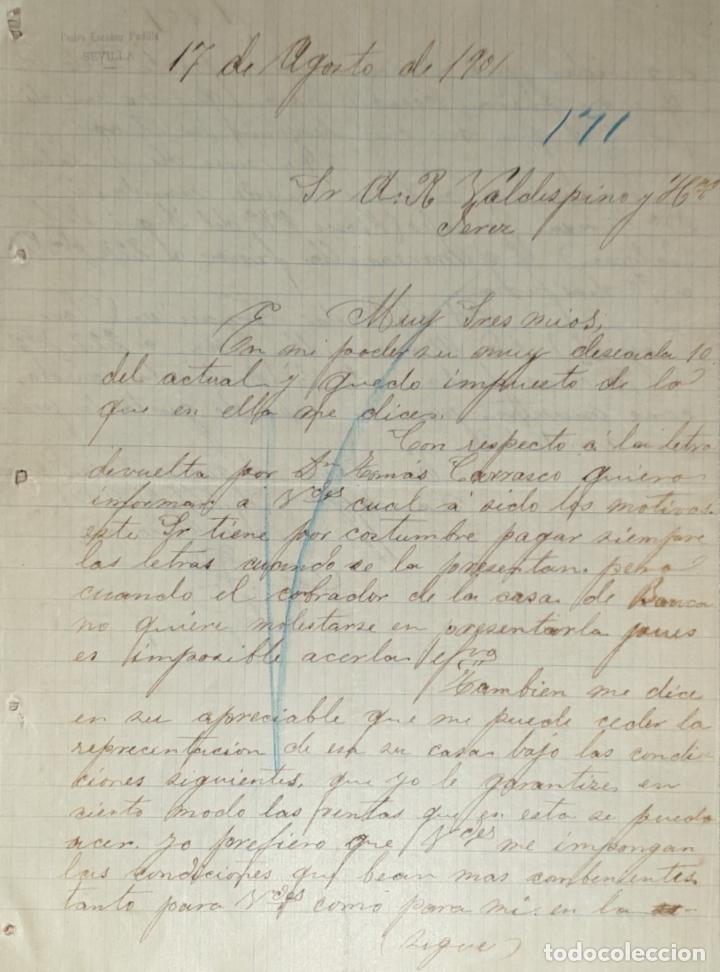 Pedro Escobar Padilla
SEVILLA
17 de Agosto de 1901
171
Sr A. R Valdespino y Hno
Jerez
Muy Sres mios,
En mi poder su muy deseada 10
del actual y quedo impuesto de lo
que en ella me dices.
Con respecto á la letra
devuelta por Dn Tomas Carrasco quiero
informar a Vdes cual á sido los motivos
este Sr tiene por costumbre pagar siempre
las letras cuando se la presentan pero
cuando el cobrador de la casa de Banca
no quiere molestarse en presentarla pues
es imposible acerla efva
Tambien me dice
en su apreciable que me puede ceder la
reprecentacion de esa su casa bajo las condi-
ciones siguientes, que yo le garantize en
siento modo las ventas que en esta se pueda
acer. yo prefiero que Vdes me impongan
las condiciones que bean mas combenientes
tanto para Vdes como para mi en la
(sigue)
todocoleccion
todocoleccion.net